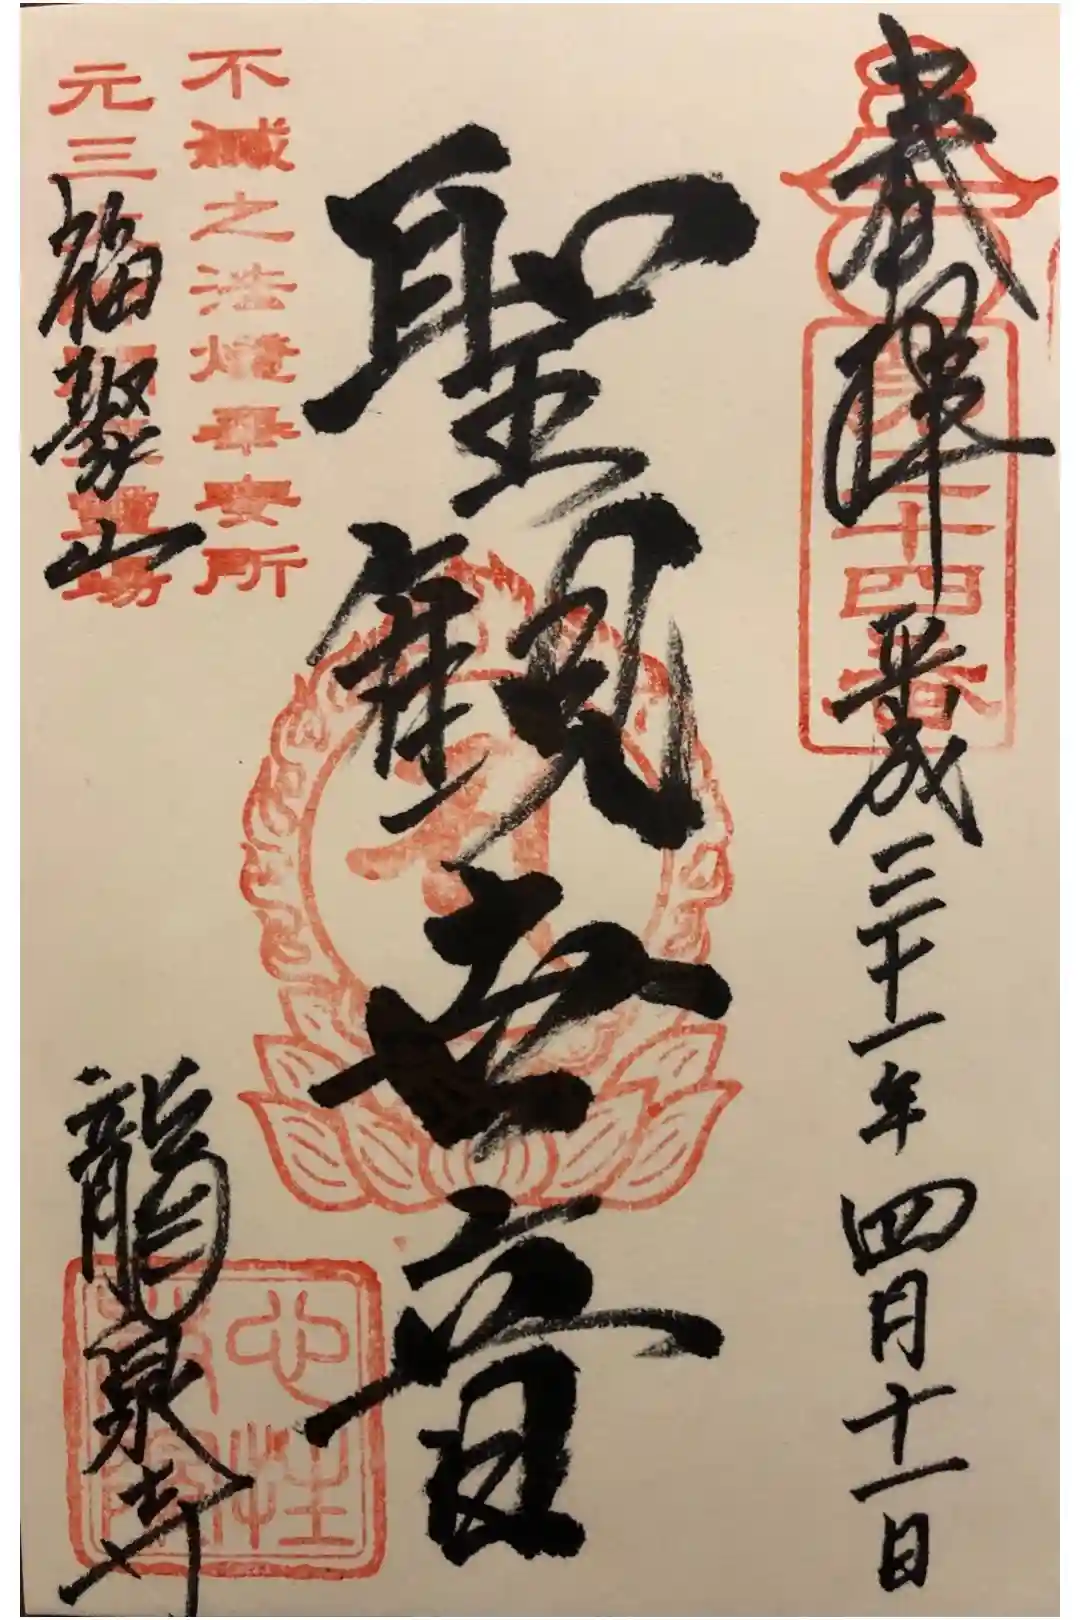 奉拝
十四番
平成三十一年四月十一日
聖観世音
不滅之法燈奉安所
元三
場
福聚山
龍泉寺
心性